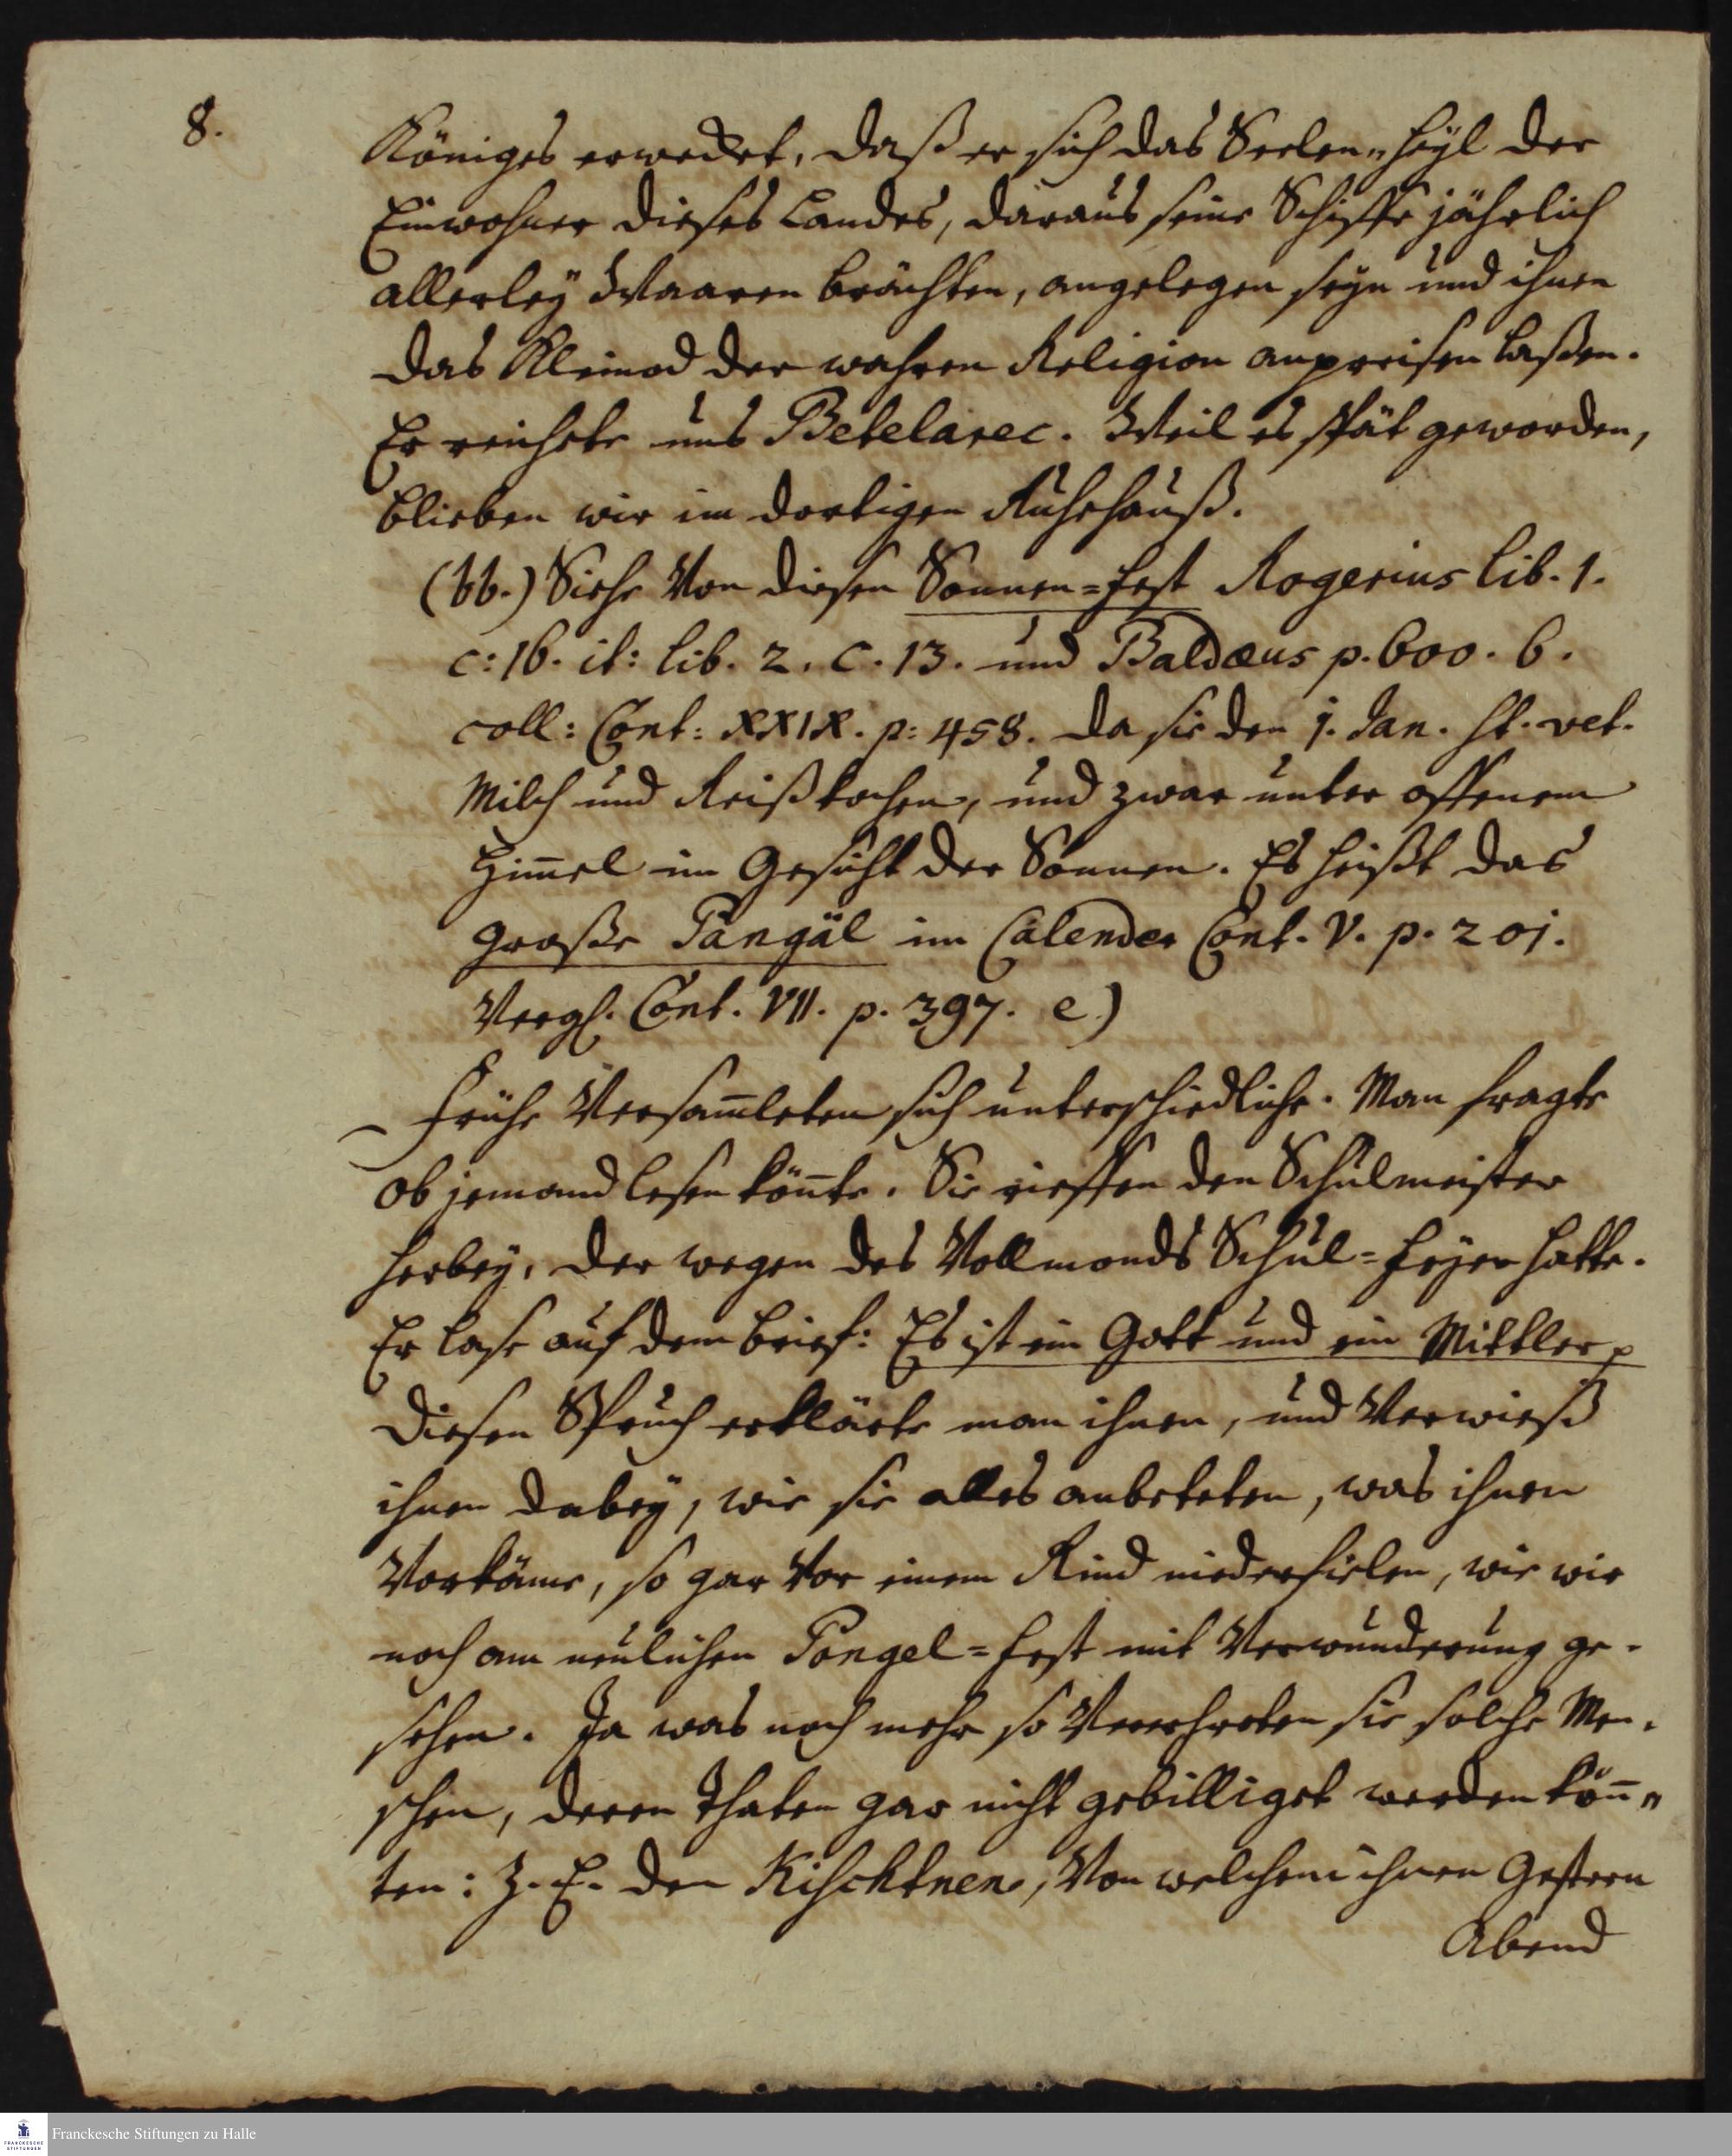 8.
Königes erwecket, daß er sich das Seelen-Heyl der
Einwohner dieses Landes, daraus seine Schiffe jährlich
allerley Waaren brächten, angelegen seyn und ihnen
das Kleinod der wahren Religion anpreisen laßen.
Er reichete uns Betelarec. Weil es spät geworden,
blieben wir im dortigen Ruhehauß.
(bb.) Siehe von diesen Sonnen=Fest Rogerius lib. 1.
c: 16. it: lib. 2. c. 13. und Baldæus p. 600. b.
coll: Cont: XXIX. p: 458. da sie den 1. Jan. st. vet.
Milch und Reiß kochen, und zwar unter offenem
Him̄el im Gesicht der Sonnen. Es heißt das
große Pangäl im Calender Cont. V. p. 201.
Vergl. Cont. VII. p. 397. e.)
Frühe versam̄leten sich unterschiedliche. Man fragte
ob jemand lesen kön̄te. Sie rieffen den Schulmeister
herbey, der wegen des Vollmonds Schul=Feyer hatte.
Er lase auf dem Brief: Es ist ein Gott und ein Mittler p
Diesen Spruch erklärte man ihnen, und verwieß
ihnen dabey, wie sie alles anbeteten, was ihnen
vorkäme, so gar vor einem Rind niederfielen, wie wir
noch am neulichen Pongel=Fest mit Verwunderung ge-
sehen. Ja was noch mehr so verehreten sie solche Men-
schen, deren Thaten gar nicht gebilliget werden kön̄-
ten: Z. E. den Kischtnen, von welchem ihnen gestern
Abend
Franckesche Stiftungen zu Halle
FRANCKESCHE
STIFTUNGEN